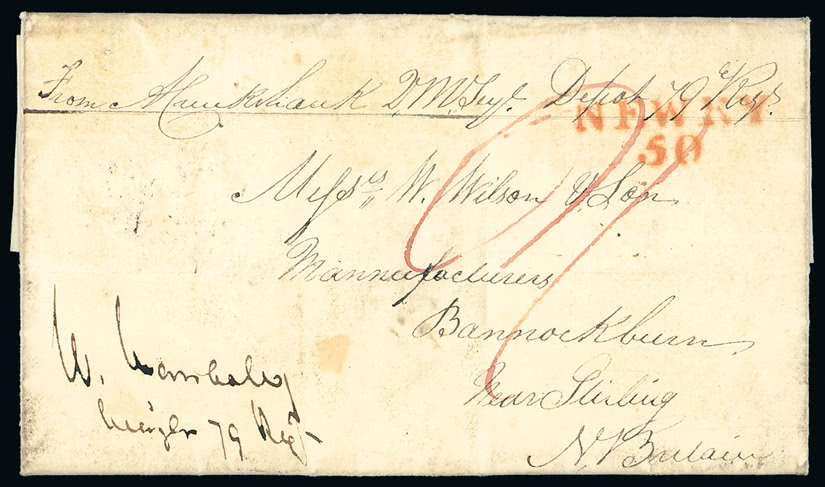 From A Cruikshank Q.M. Serjt. Depot 79 Regt.
NEWRY
50
Messrs W. Wilson & Son
Mannufacturers
Bannockburn
Near Stirling
N. Britain
W.
Major 79 Regt